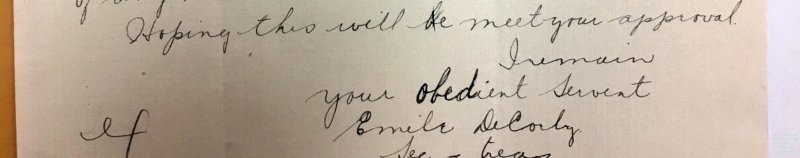 of
Hoping this will meet your approval.
I remain
your obedient servent
Emile DeCorly
Sec - treas